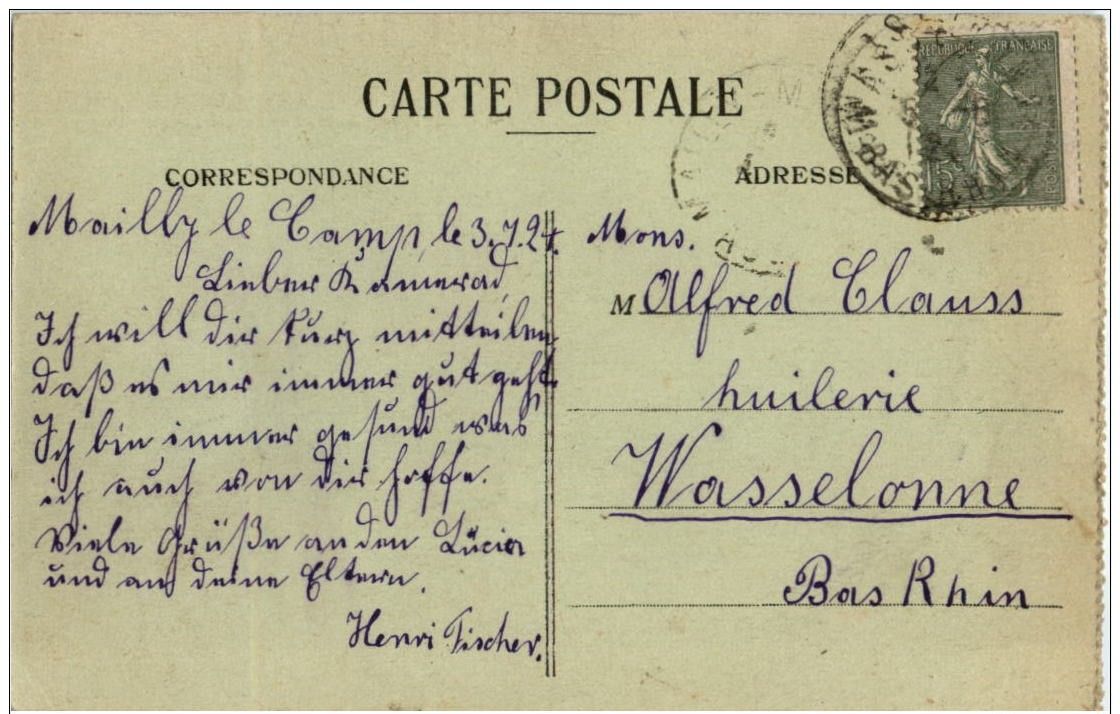 CARTE POSTALE
CORRESPONDANCE
ADRESSE
RÉPUBLIQUE FRANÇAISE
15c
Mailly le Camp, le 3.7.24.
Lieber Kamerad,
Ich will dir kurz mitteilen
daß es mir immer gut geht.
Ich bin immer gesund was
ich auch von dir hoffe.
Viele Grüße an den
und an deine Eltern.
Henri Fischer.
Mons.
M Alfred Clauss
huilerie
Wasselonne
Bas Rhin